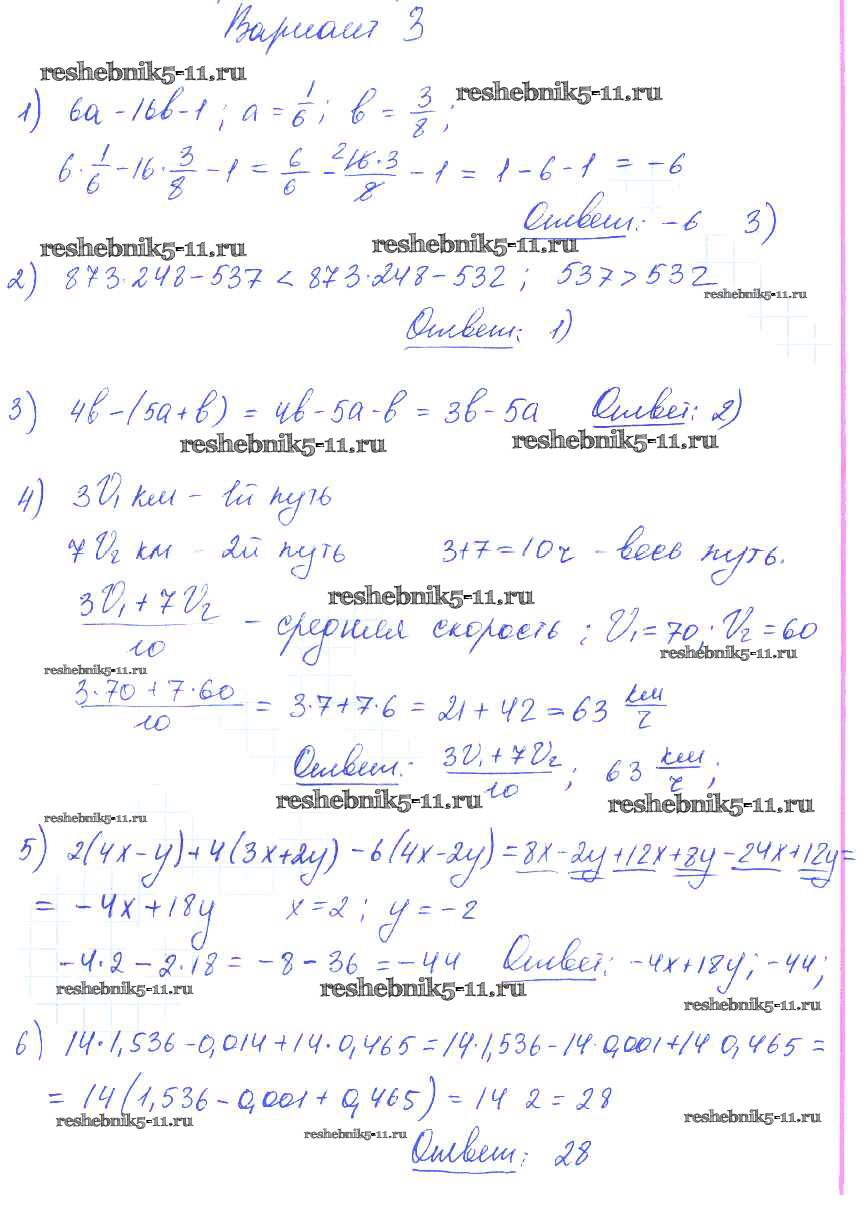 Вариант 3
reshebnik5-11.ru
reshebnik5-11.ru
1) 6a - 16b - 1 ; a = 1/6 ; b = 3/8 ;
6 · 1/6 - 16 · 3/8 - 1 = 6/6 - 2 16·3/8 - 1 = 1 - 6 - 1 = -6
Ответ: -6 3)
reshebnik5-11.ru
reshebnik5-11.ru
2) 873·248 - 537 < 873·248 - 532 ; 537 > 532
reshebnik5-11.ru
Ответ: 1)
3) 4b - (5a + b) = 4b - 5a - b = 3b - 5a Ответ: 2)
reshebnik5-11.ru
reshebnik5-11.ru
4) 3V₁ км - 1й путь
7V₂ км - 2й путь 3+7=10ч - весь путь.
reshebnik5-11.ru
(3V₁ + 7V₂)/10 - средняя скорость ; V₁ = 70; V₂ = 60
reshebnik5-11.ru
reshebnik5-11.ru
(3·70 + 7·60)/10 = 3·7 + 7·6 = 21 + 42 = 63 км/ч
Ответ: (3V₁ + 7V₂)/10 ; 63 км/ч ;
reshebnik5-11.ru
reshebnik5-11.ru
reshebnik5-11.ru
5) 2(4x - y) + 4(3x + 2y) - 6(4x - 2y) = 8x - 2y + 12x + 8y - 24x + 12y =
= -4x + 18y x = 2 ; y = -2
-4·2 - 2·18 = -8 - 36 = -44 Ответ: -4x + 18y; -44;
reshebnik5-11.ru
reshebnik5-11.ru
reshebnik5-11.ru
6) 14·1,536 - 0,014 + 14·0,465 = 14·1,536 - 14·0,001 + 14 0,465 =
= 14(1,536 - 0,001 + 0,465) = 14 2 = 28
reshebnik5-11.ru
reshebnik5-11.ru
reshebnik5-11.ru
Ответ: 28